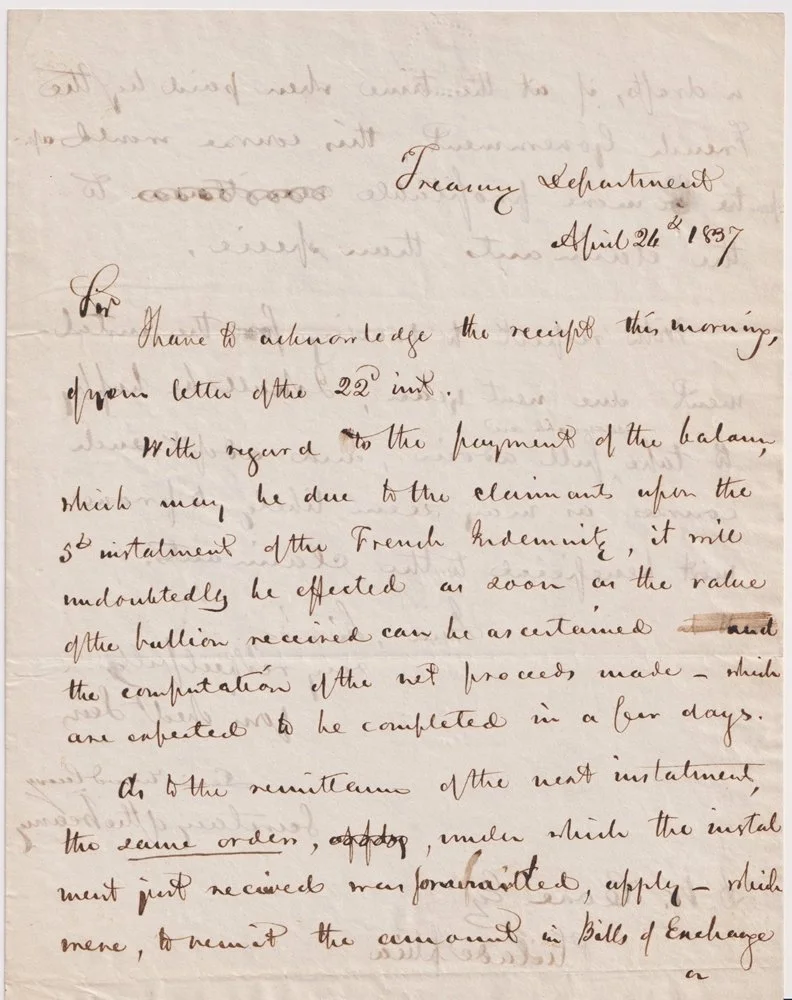 Treasury Department
April 24th 1837
Sir
I have to acknowledge the receipt this morning,
of your letter of the 22d inst.
With regard to the payment of the balance,
which may be due to the claimants upon the
5th instalment of the French Indemnity, it will
undoubtedly be effected as soon as the value
of the bullion received can be ascertained and
the computation of the net proceeds made – which
are expected to be completed in a few days.
As to the remittance of the next instalment,
the same orders, under which the instal
ment just received was remitted, apply – which
were, to remit the amount in Bills of Exchange
or